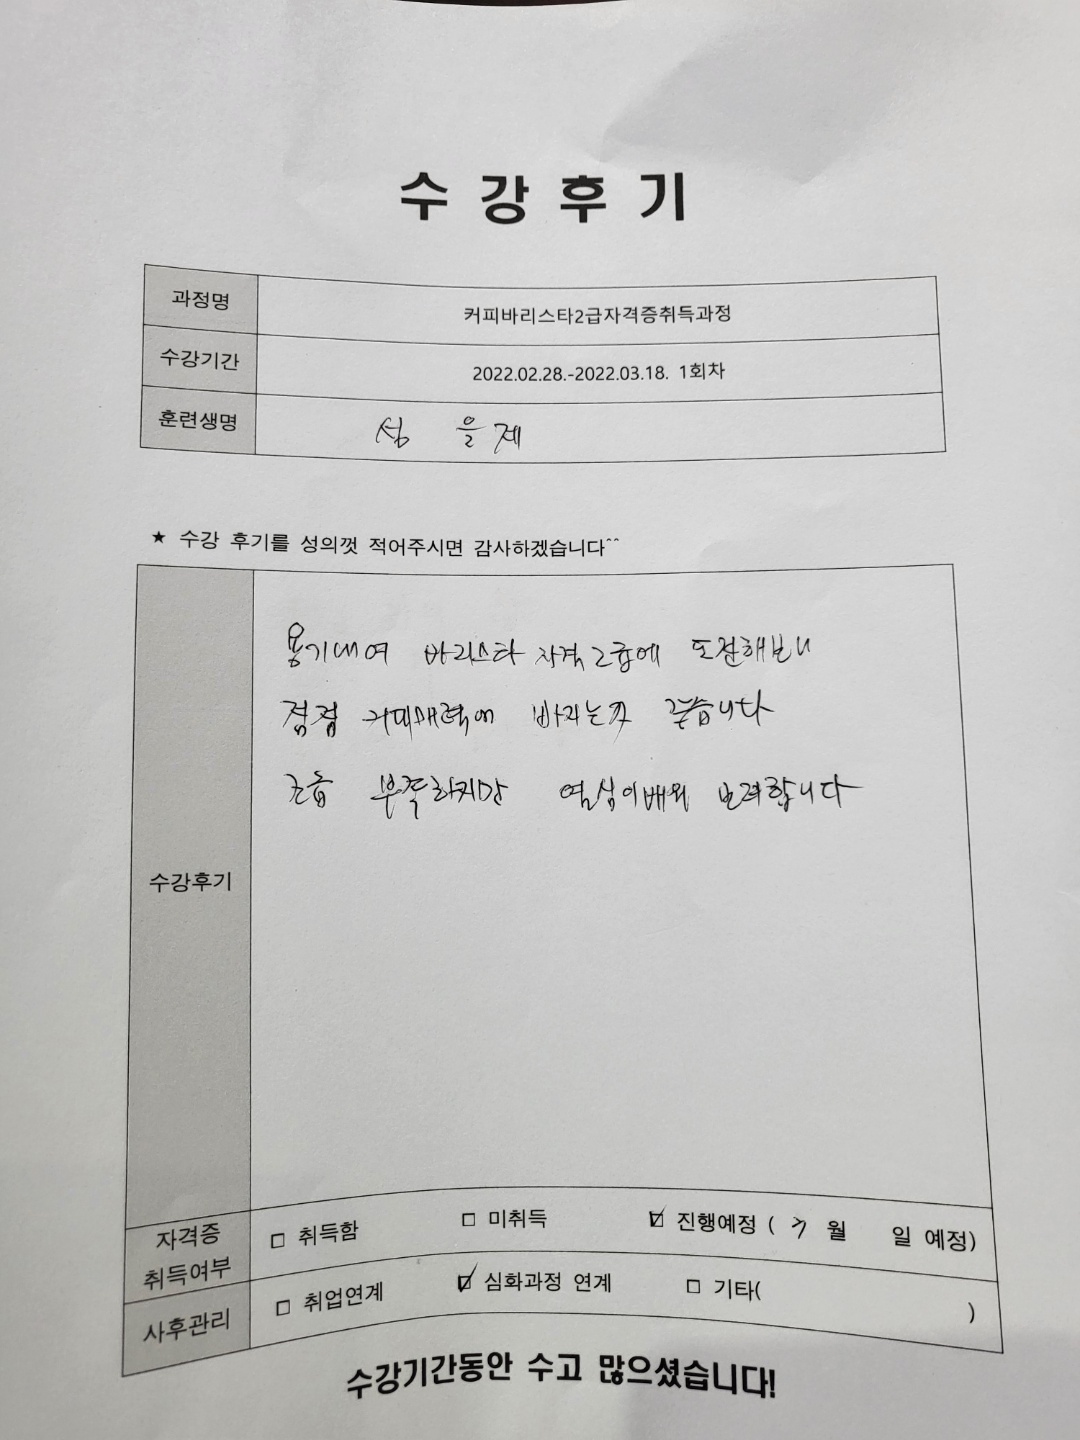 수강후기
과정명 커피바리스타2급자격증취득과정
수강기간 2022.02.28.-2022.03.18. 1회차
훈련생명 심 을 제
★ 수강 후기를 성의껏 적어주시면 감사하겠습니다^^
용기내여 바리스타 자격 2급에 도전해보니
점점 커피매력에 빠지는것 같습니다
조금 부족하지만 열심이배워 보려합니다
수강후기
자격증 취득여부 □ 취득함 □ 미취득 ☑ 진행예정 ( 7 월 일 예정)
사후관리 □ 취업연계 ☑ 심화과정 연계 □ 기타( )
수강기간동안 수고 많으셨습니다!